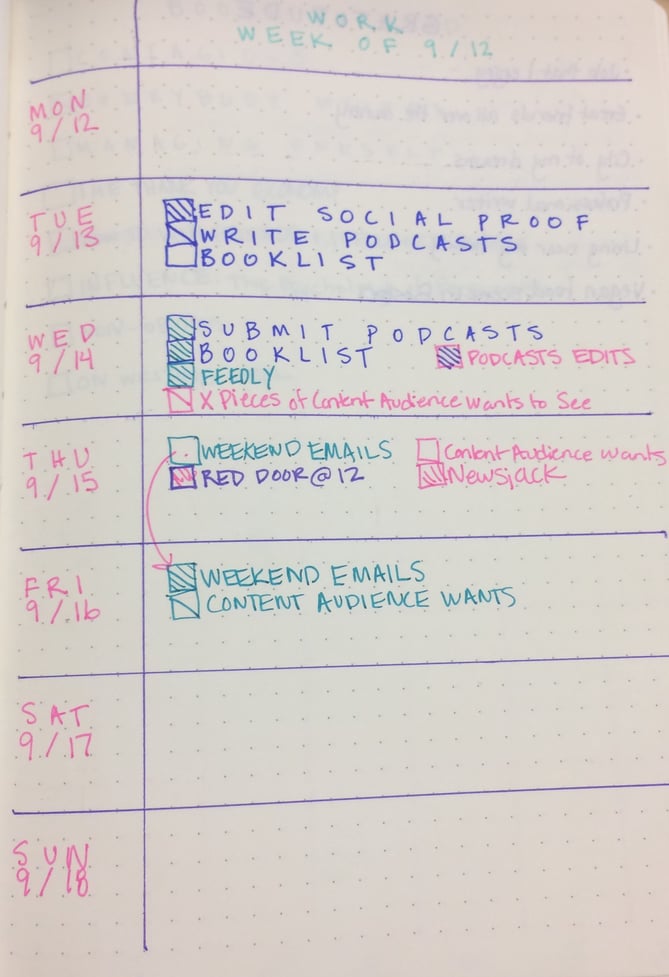 WORK
WEEK OF 9/12
MON
9/12
TUE
9/13
EDIT SOCIAL PROOF
WRITE PODCASTS
BOOKLIST
WED
9/14
SUBMIT PODCASTS
BOOKLIST
PODCASTS EDITS
FEEDLY
X Pieces of Content Audience Wants to See
THU
9/15
WEEKEND EMAILS
Content Audience wants
RED DOOR@12
Newsjack
FRI
9/16
WEEKEND EMAILS
CONTENT AUDIENCE WANTS
SAT
9/17
SUN
9/18